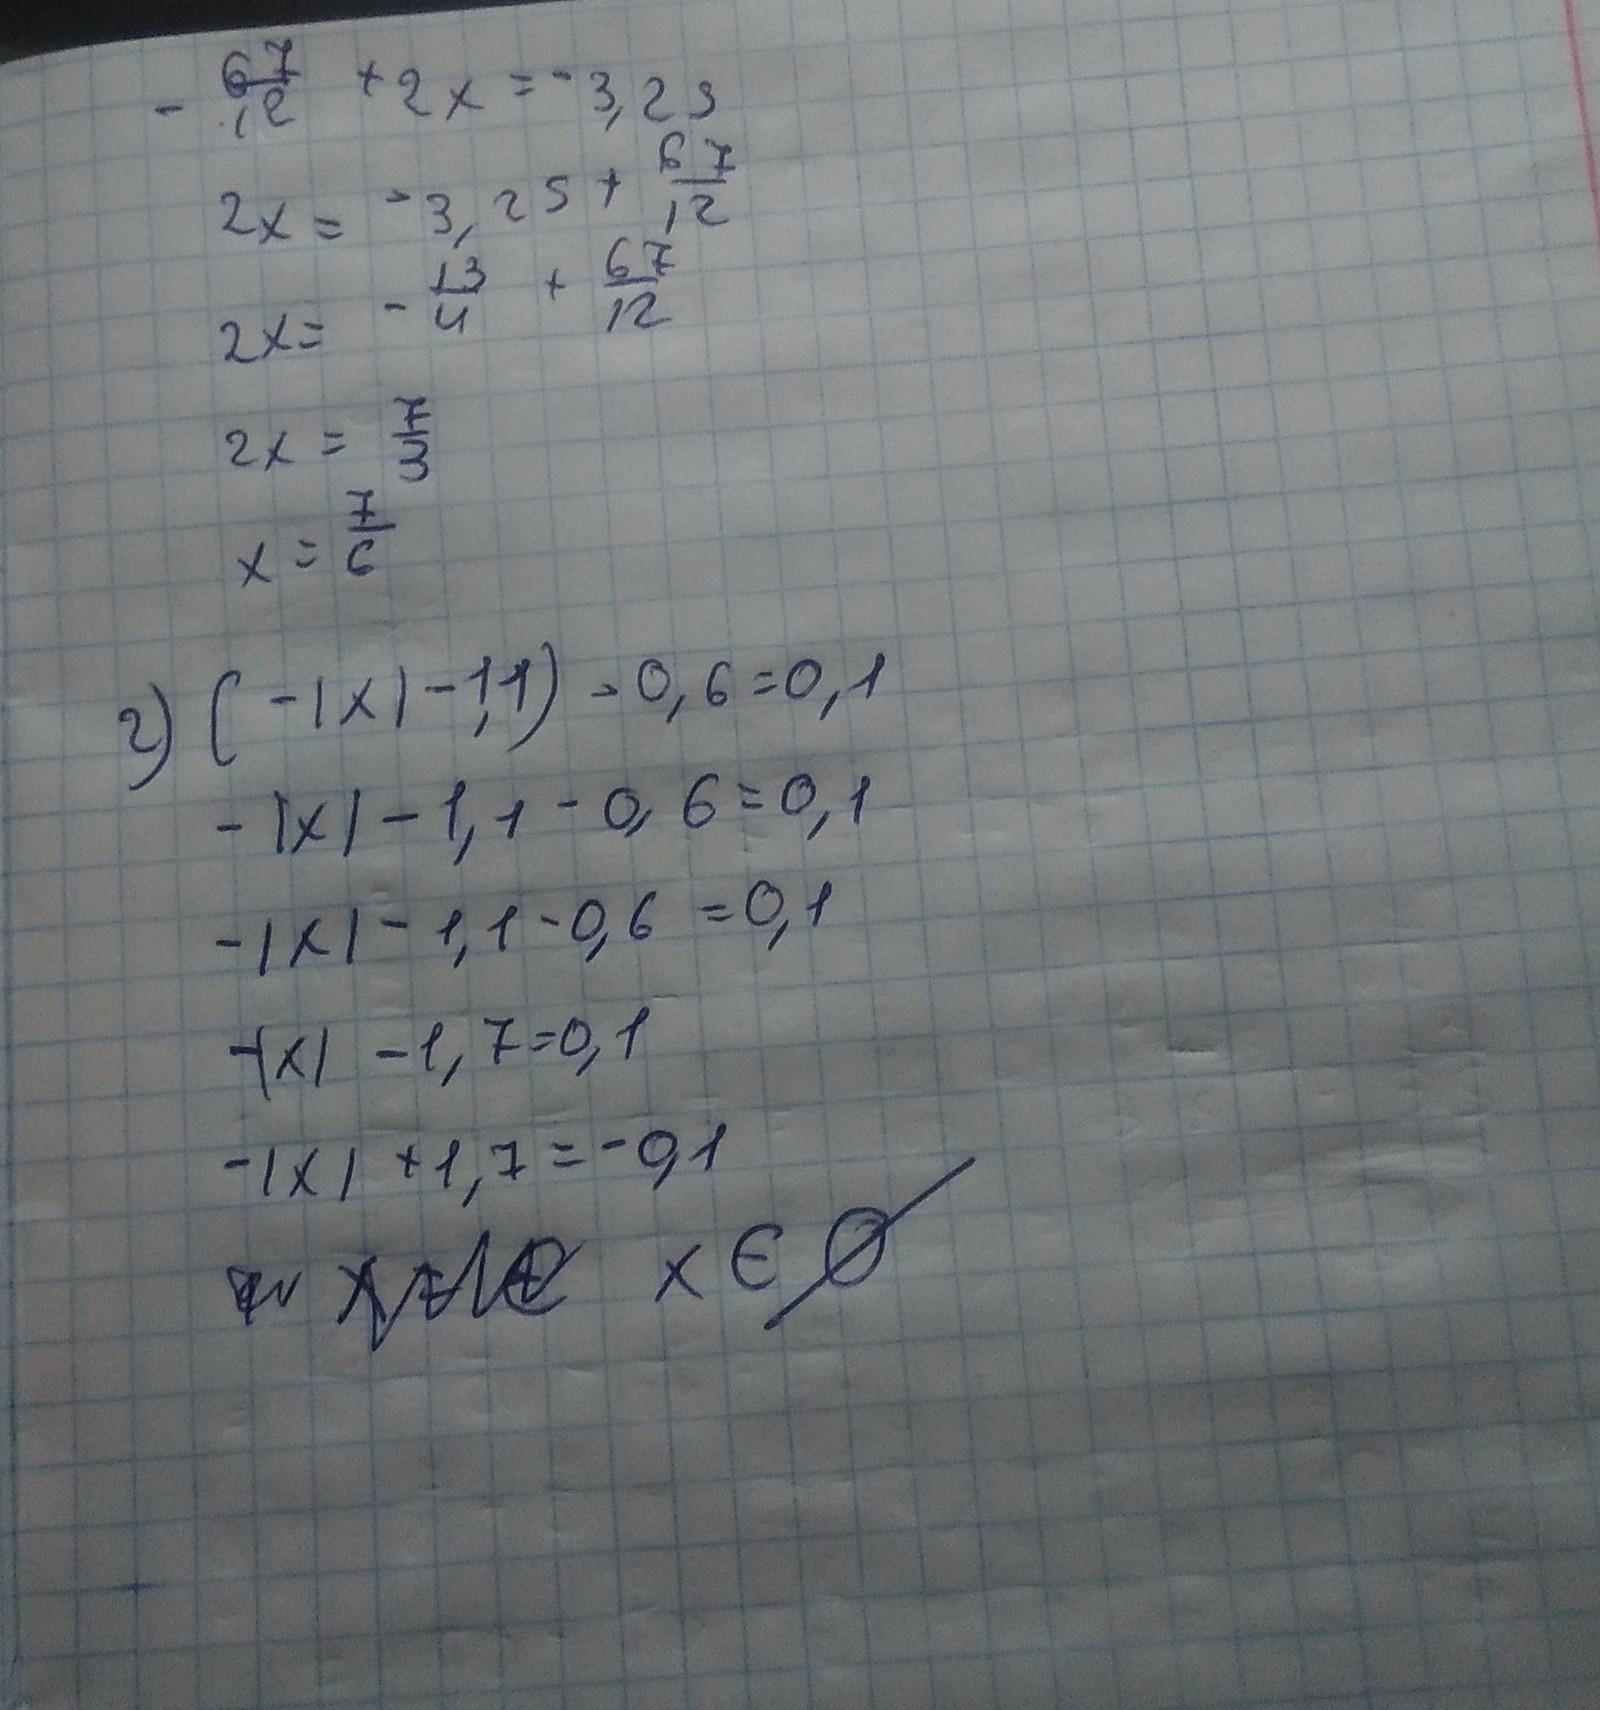 - 67/12 + 2x = -3,25
2x = -3,25 + 67/12
2x = - 13/4 + 67/12
2x = 7/3
x = 7/6
г) (-|x| - 1,1) - 0,6 = 0,1
-|x| - 1,1 - 0,6 = 0,1
-|x| - 1,1 - 0,6 = 0,1
-|x| - 1,7 = 0,1
-|x| + 1,7 = -0,1
x ∈ ∅